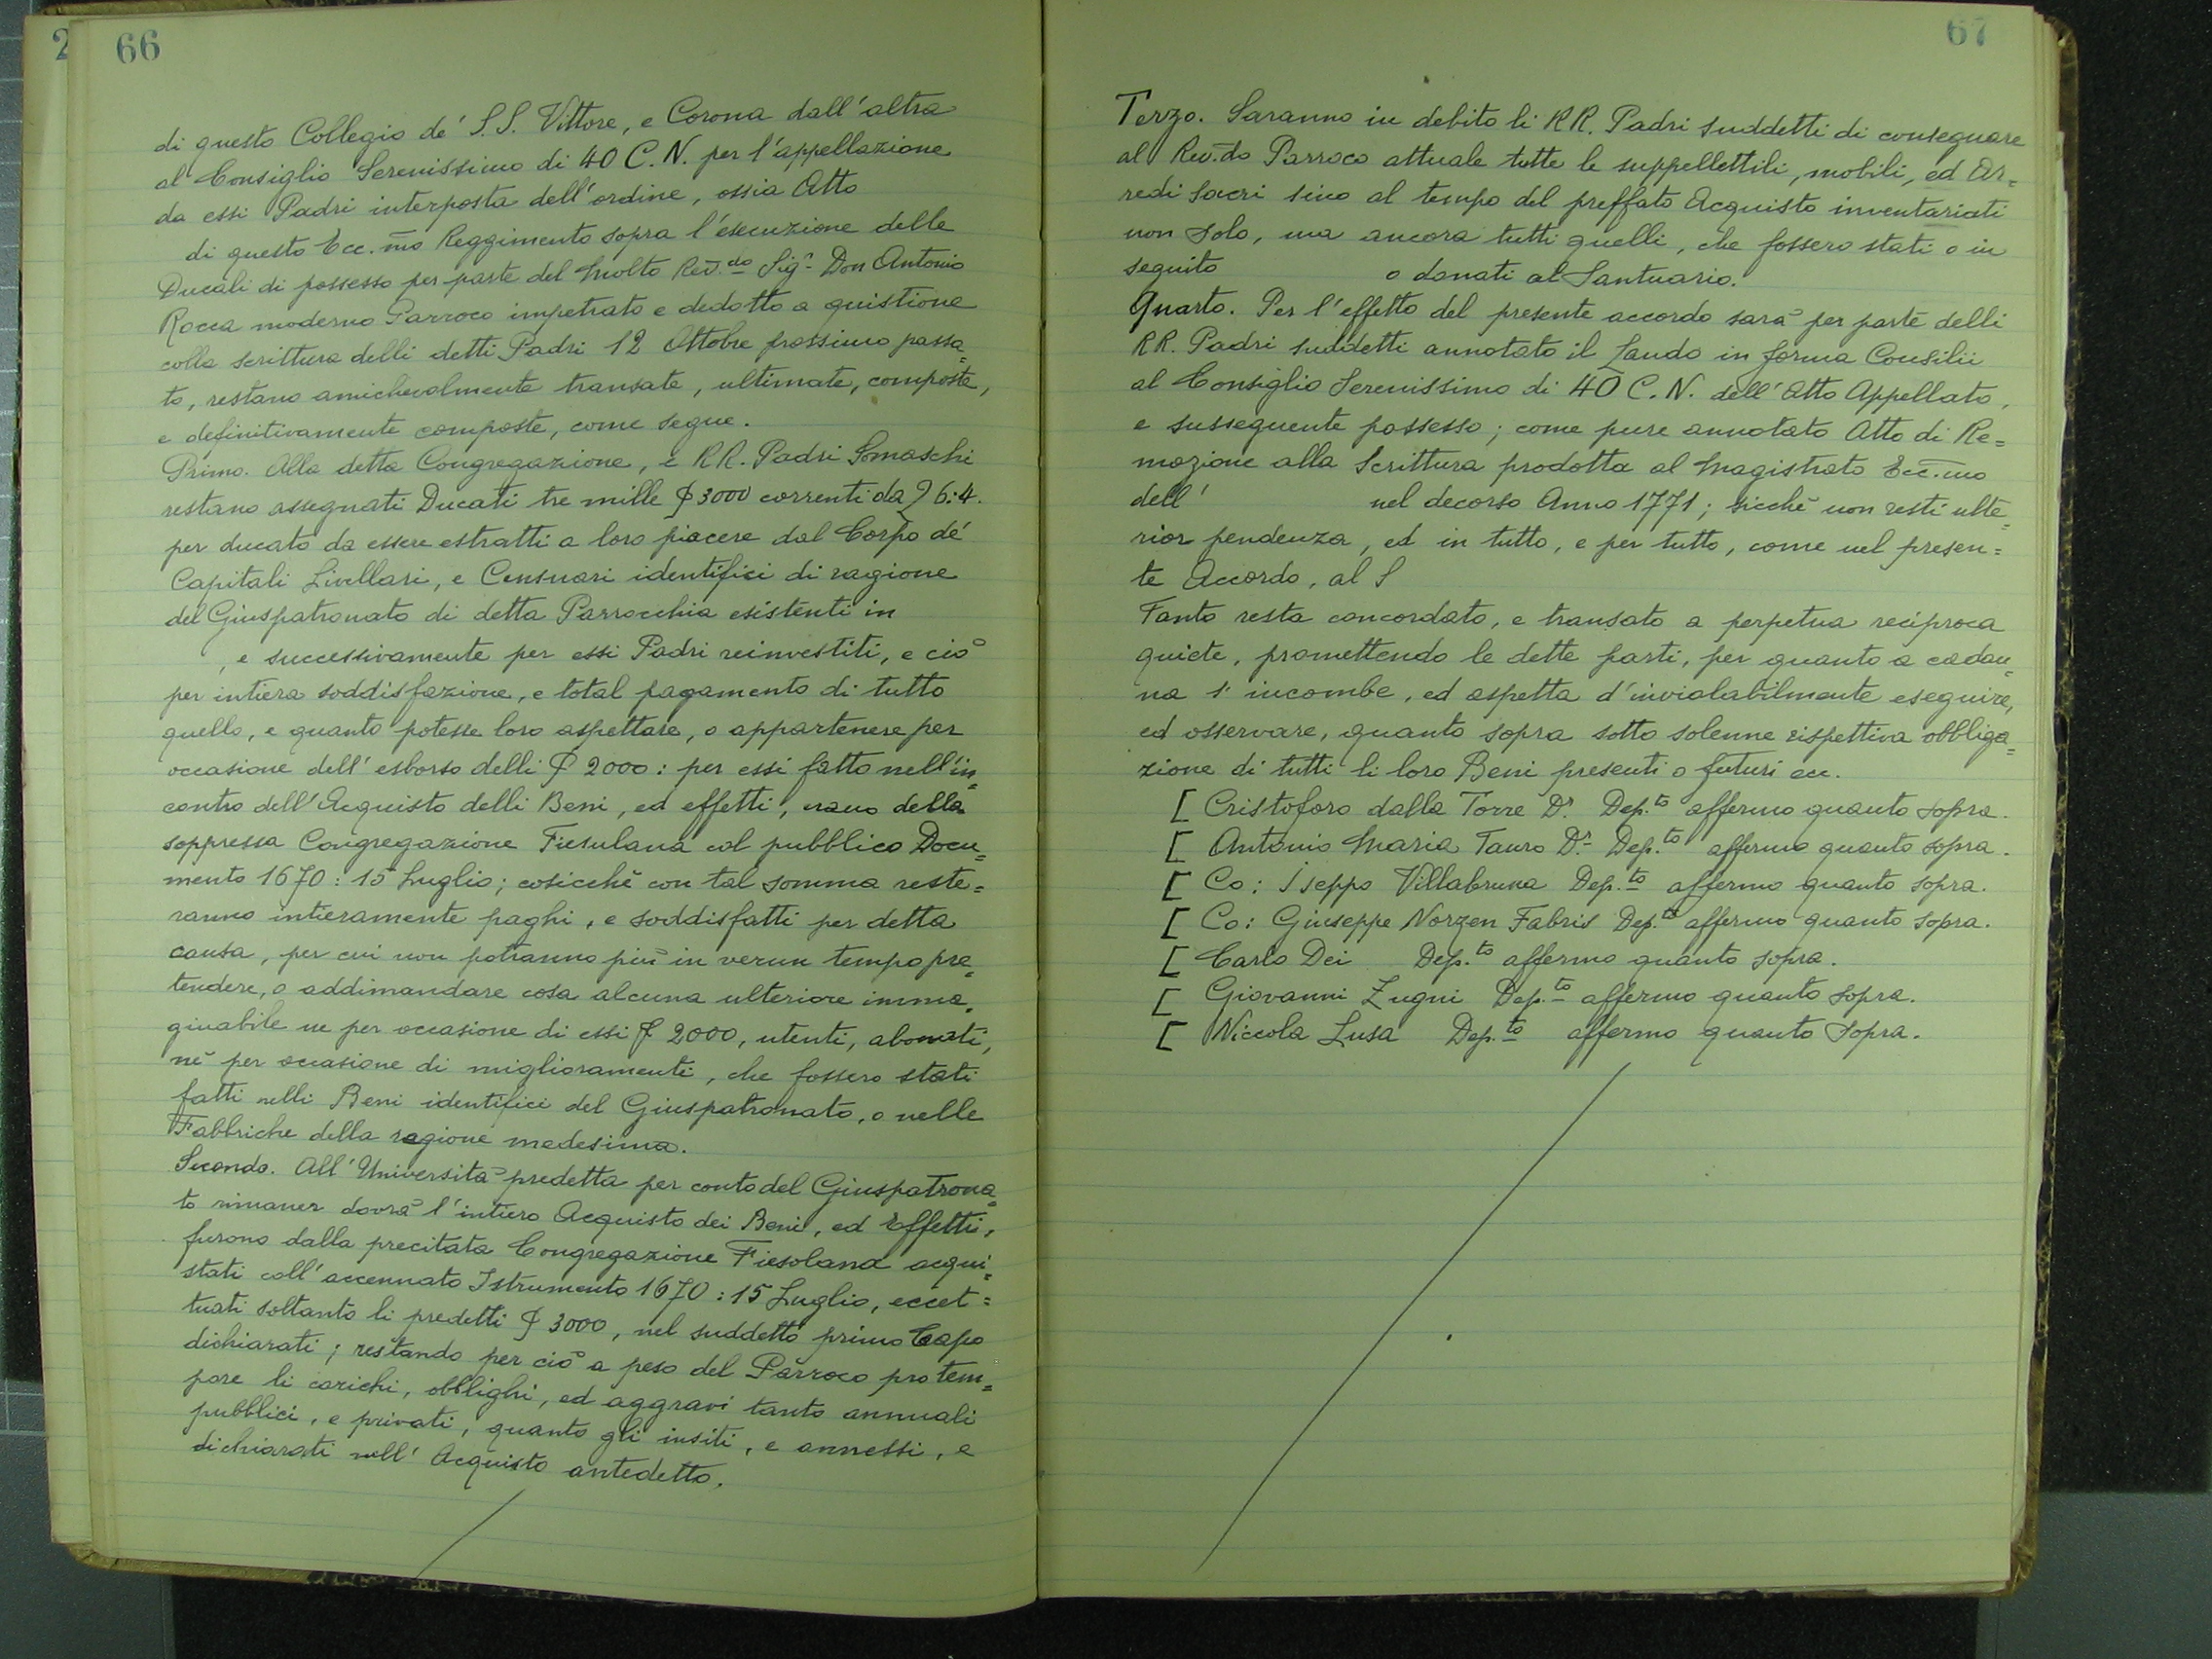 2
66
di questo Collegio de' S.S. Vittore, e Corona dall'altra
al Consiglio Serenissimo di 40 C.N. per l'appellazione
da essi Padri interposta dell'ordine, ossia Atto
di questo Ecc.mo Reggimento sopra l'esecuzione delle
Ducali di possesso per parte del Molto Rev.do Sigr Don Antonio
Rocca moderno Parroco impetrato e dedotto a quistione
colla scrittura delli detti Padri 12 Ottobre prossimo passa=
to, restano amichevolmente transate, ultimate, composte,
e definitivamente composte, come segue.
Primo. Alla detta Congregazione, e RR. Padri Somaschi
restano assegnati Ducati tre mille 3000 correnti da 6:4.
per ducato da essere estratti a loro piacere dal Corpo de'
Capitali Livellari, e Censuari identifici di ragione
del Giuspatronato di detta Parrocchia esistenti in
, e successivamente per essi Padri reinvestiti, e ciò
per intiera soddisfazione, e total pagamento di tutto
quello, e quanto potesse loro aspettare, o appartenere per
occasione dell'esborso delli 2000: per essi fatto nell'in=
contro dell'Acquisto delli Beni, ed effetti, erano della
soppressa Congregazione Fiesulana col pubblico Docu=
mento 1670: 15 Luglio; cosicchè con tal somma reste=
ranno intieramente paghi, e soddisfatti per detta
causa, per cui non potranno più in verun tempo pre=
tendere, o addimandare cosa alcuna ulteriore imma=
ginabile ne per occasione di essi 2000, utenti, abonati,
nè per occasione di miglioramenti, che fossero stati
fatti nelli Beni identifici del Giuspatronato, o nelle
Fabbriche della ragione medesima.
Secondo. All'Università predetta per conto del Giuspatrona=
to rimaner dovrà l'intiero Acquisto dei Beni, ed Effetti,
furono dalla precitata Congregazione Fiesolana acqui=
stati coll'accennato Istrumento 1670: 15 Luglio, eccet=
tuati soltanto li predetti 3000, nel suddetto primo Capo
dichiarati; restando per ciò a peso del Parroco pro tem=
pore li carichi, obblighi, ed aggravi tanto annuali
pubblici, e privati, quanto gli insiti, e annessi, e
dichiarati nell'Acquisto antedetto.
67
Terzo. Saranno in debito li RR. Padri suddetti di consegnare
al Rev.do Parroco attuale tutte le suppellettili, mobili, ed Ar=
redi sacri sino al tempo del preffato Acquisto inventariati
non solo, ma ancora tutti quelli, che fossero stati o in
seguito o donati al Santuario.
Quarto. Per l'effetto del presente accordo sarà per parte delli
RR. Padri suddetti annotato il Laudo in forma Consilii
al Consiglio Serenissimo di 40 C.N. dell'Atto Appellato,
e susseguente possesso; come pure annotato Atto di Re=
mozione alla Scrittura prodotta al Magistrato Ecc.mo
dell' nel decorso Anno 1771; sicchè non resti ulte=
rior pendenza, ed in tutto, e per tutto, come nel presen=
te Accordo, al S
Tanto resta concordato, e transato a perpetua reciproca
quiete, promettendo le dette parti, per quanto a cadau=
na s'incombe, ed aspetta d'inviolabilmente eseguire,
ed osservare, quanto sopra sotto solenne rispettiva obbliga=
zione di tutti li loro Beni presenti o futuri ecc.
[ Cristoforo dalla Torre Dr. Dep.to affermo quanto sopra.
[ Antonio Maria Tauro Dr. Dep.to affermo quanto sopra.
[ Co: Iseppo Villabruna Dep.to affermo quanto sopra.
[ Co: Giuseppe Norzen Fabris Dep.to affermo quanto sopra.
[ Carlo Dei Dep.to affermo quanto sopra.
[ Giovanni Zugni Dep.to affermo quanto sopra.
[ Niccola Lusa Dep.to affermo quanto sopra.